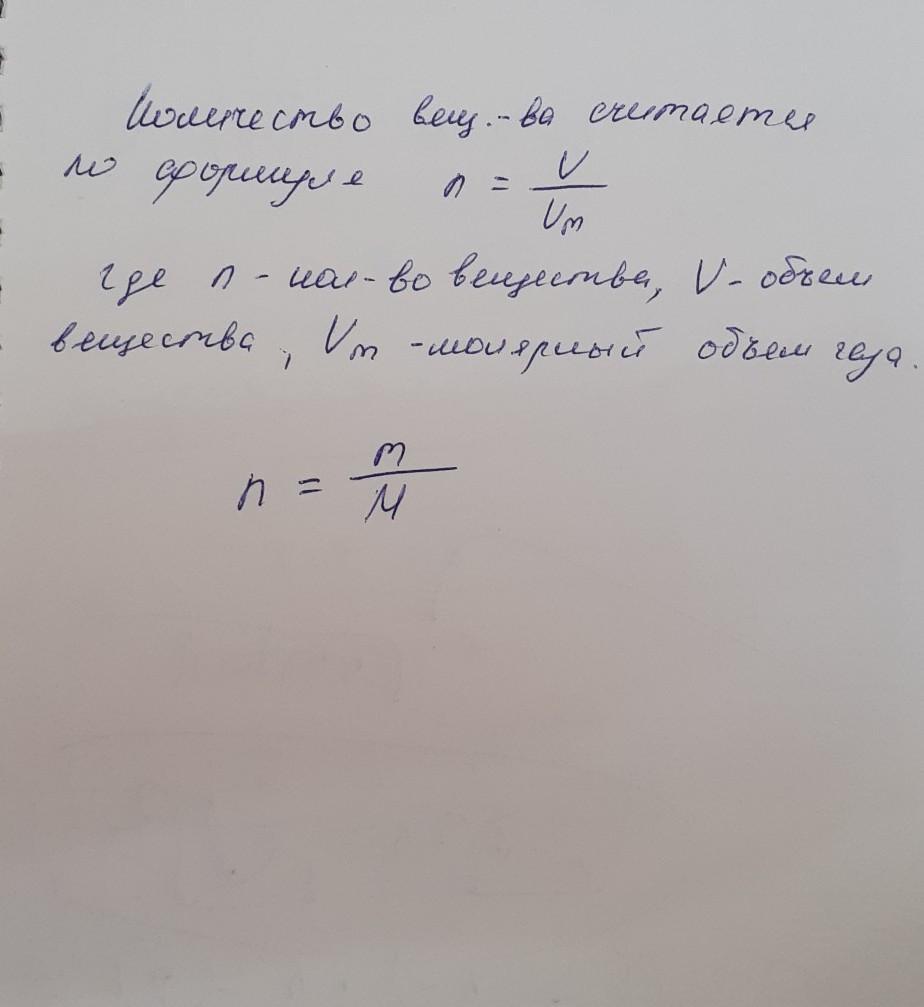 Количество вещ.-ва считается
по формуле n = V / Vm
где n - кол-во вещества, V - объем
вещества, Vm - молярный объем газа.
n = m / M